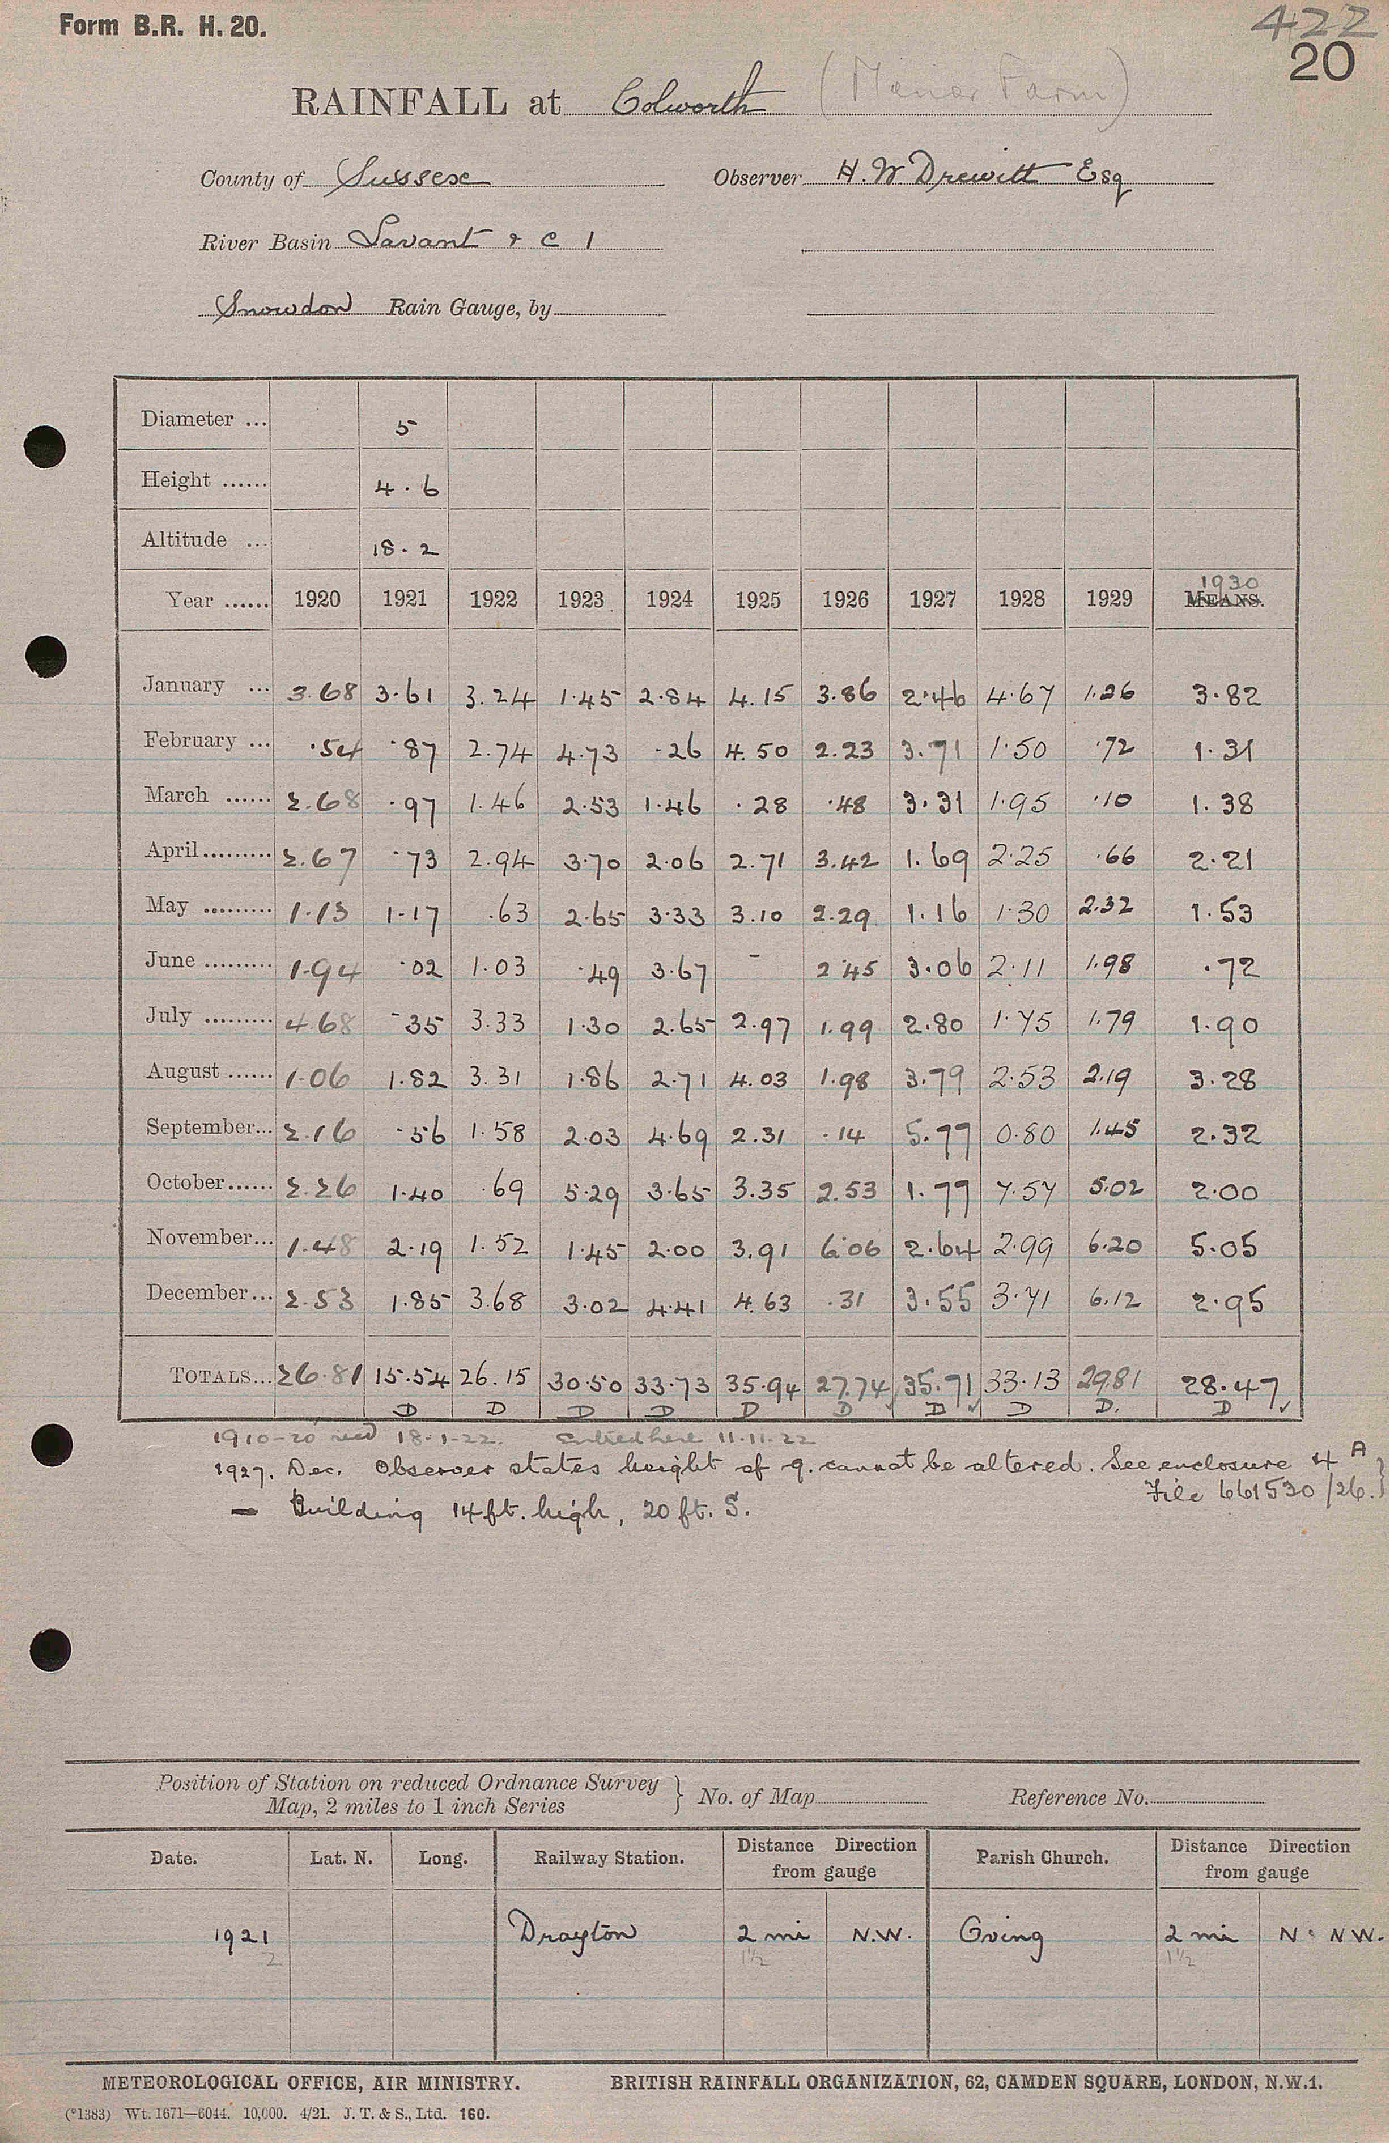 Form B.R. H. 20.
422
20
RAINFALL at Colworth (Manor Farm)
County of Sussex Observer H. W. Drewitt Esq
River Basin Lavant & C 1
Snowdon Rain Gauge, by
Diameter ... 5
Height ...... 4.6
Altitude ... 18.2
1930
Year ...... 1920 1921 1922 1923 1924 1925 1926 1927 1928 1929 MEANS.
January ... 3.68 3.61 3.24 1.45 2.84 4.15 3.86 2.46 4.67 1.26 3.82
February ... .54 .87 2.74 4.73 .26 4.50 2.23 3.71 1.50 .72 1.31
March ...... 2.68 .97 1.46 2.53 1.46 .28 .48 3.31 1.95 .10 1.38
April ......... 2.67 .73 2.94 3.70 2.06 2.71 3.42 1.69 2.25 .66 2.21
May ......... 1.13 1.17 .63 2.65 3.33 3.10 2.29 1.16 1.30 2.32 1.53
June ......... 1.94 .02 1.03 .49 3.67 - 2.45 3.06 2.11 1.98 .72
July ......... 4.68 .35 3.33 1.30 2.65 2.97 1.99 2.80 1.75 1.79 1.90
August ...... 1.06 1.82 3.31 1.86 2.71 4.03 1.98 3.79 2.53 2.19 3.28
September... 2.16 .56 1.58 2.03 4.69 2.31 .14 5.77 0.80 1.45 2.32
October...... 2.26 1.40 .69 5.29 3.65 3.35 2.53 1.77 7.57 5.02 2.00
November... 1.48 2.19 1.52 1.45 2.00 3.91 6.06 2.64 2.99 6.20 5.05
December... 2.53 1.85 3.68 3.02 4.41 4.63 .31 3.55 3.71 6.12 2.95
TOTALS... 26.81 15.54 26.15 30.50 33.73 35.94 27.74 35.71 33.13 29.81 28.47
D D D D D D D D D. D
1910-20 recd 18-1-22. Entered here 11-11-22
1927. Dec. Observer states height of g. cannot be altered. See enclosure 4 A
File 661530/26.
— Building 14 ft. high, 20 ft. S.
Position of Station on reduced Ordnance Survey Map, 2 miles to 1 inch Series } No. of Map Reference No.
Date. Lat. N. Long. Railway Station. Distance Direction from gauge Parish Church. Distance Direction from gauge
1921 Drayton 2 mi N.W. Oving 2 mi N. NW.
2 1½ 1½
METEOROLOGICAL OFFICE, AIR MINISTRY. BRITISH RAINFALL ORGANIZATION, 62, CAMDEN SQUARE, LONDON, N.W.1.
(*1383) Wt. 1671—6044. 10,000. 4/21. J. T. & S., Ltd. 160.